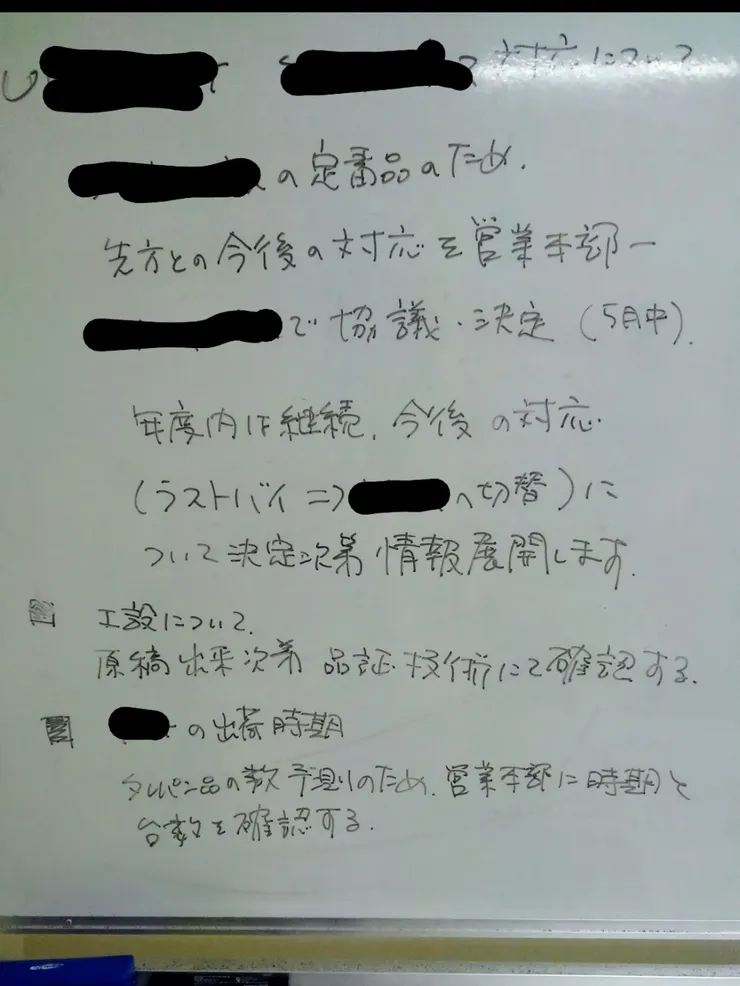 対応について
の定番品のため.
先方との今後の対応を営業本部ー
で協議・決定 (5月中).
年度内は継続. 今後の対応
(ラストバイ⇒ へ切替)に
ついて決定次第情報展開します.
工設について.
原稿出来次第 品証・技術にて確認する.
の出荷時期
タレパン品の数予測のため. 営業本部に時期と
台数を確認する.